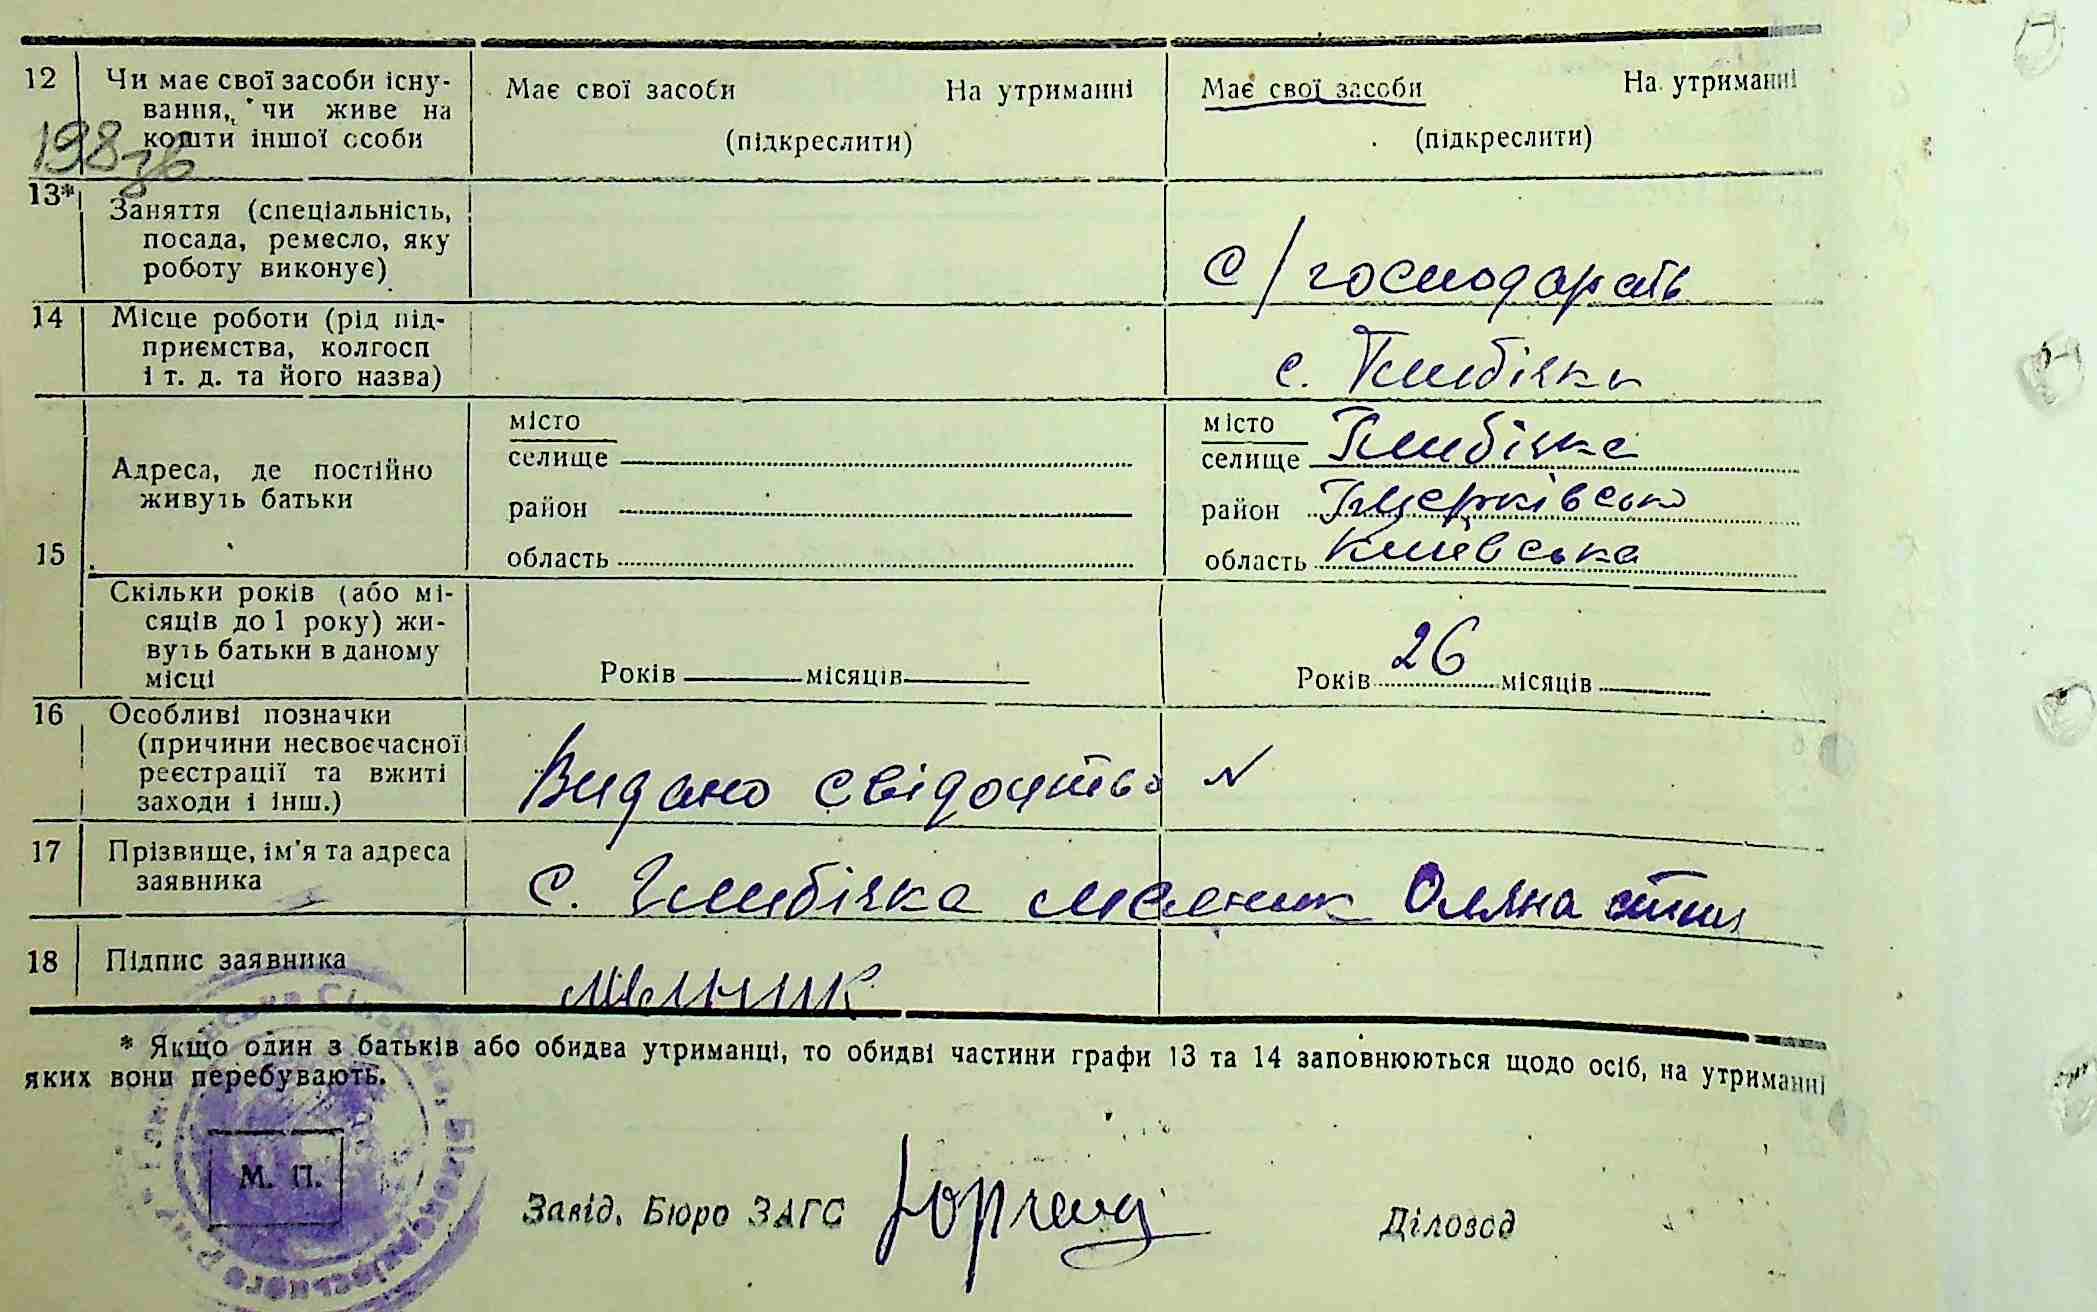 12 Чи має свої засоби існу- Має свої засоби На утриманні Має свої засоби На утриманні
вання, чи живе на
кошти іншої особи (підкреслити) (підкреслити)
198зв
13* Заняття (спеціальність,
посада, ремесло, яку
роботу виконує) с/господарств
14 Місце роботи (рід під-
приємства, колгосп с. Глибічка
і т. д. та його назва)
місто місто
Адреса, де постійно селище селище Глибічка
живуть батьки район район Бцерківсько
15 область область Київська
Скільки років (або мі-
сяців до 1 року) жи-
вуть батьки в даному Років місяців Років 26 місяців
місці
16 Особливі позначки
(причини несвоєчасної
реєстрації та вжиті Видано свідоцтво №
заходи і інш.)
17 Прізвище, ім'я та адреса
заявника с. Глибічка Мельник Оляна
18 Підпис заявника Мельник
* Якщо один з батьків або обидва утриманці, то обидві частини графи 13 та 14 заповнюються щодо осіб, на утриманні
яких вони перебувають.
М. П.
Завід. Бюро ЗАГС Діловод